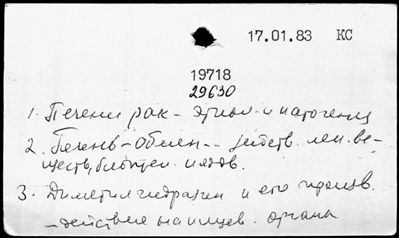 17.01.83 КС
19718
29630
1. Печени рак - этиол. и патогенез
2. Печень - обмен - действ. лек. ве-
ществ, биопреп. и ядов.
3. Диметилгидразин и его произв.
- действие на пищев. органы